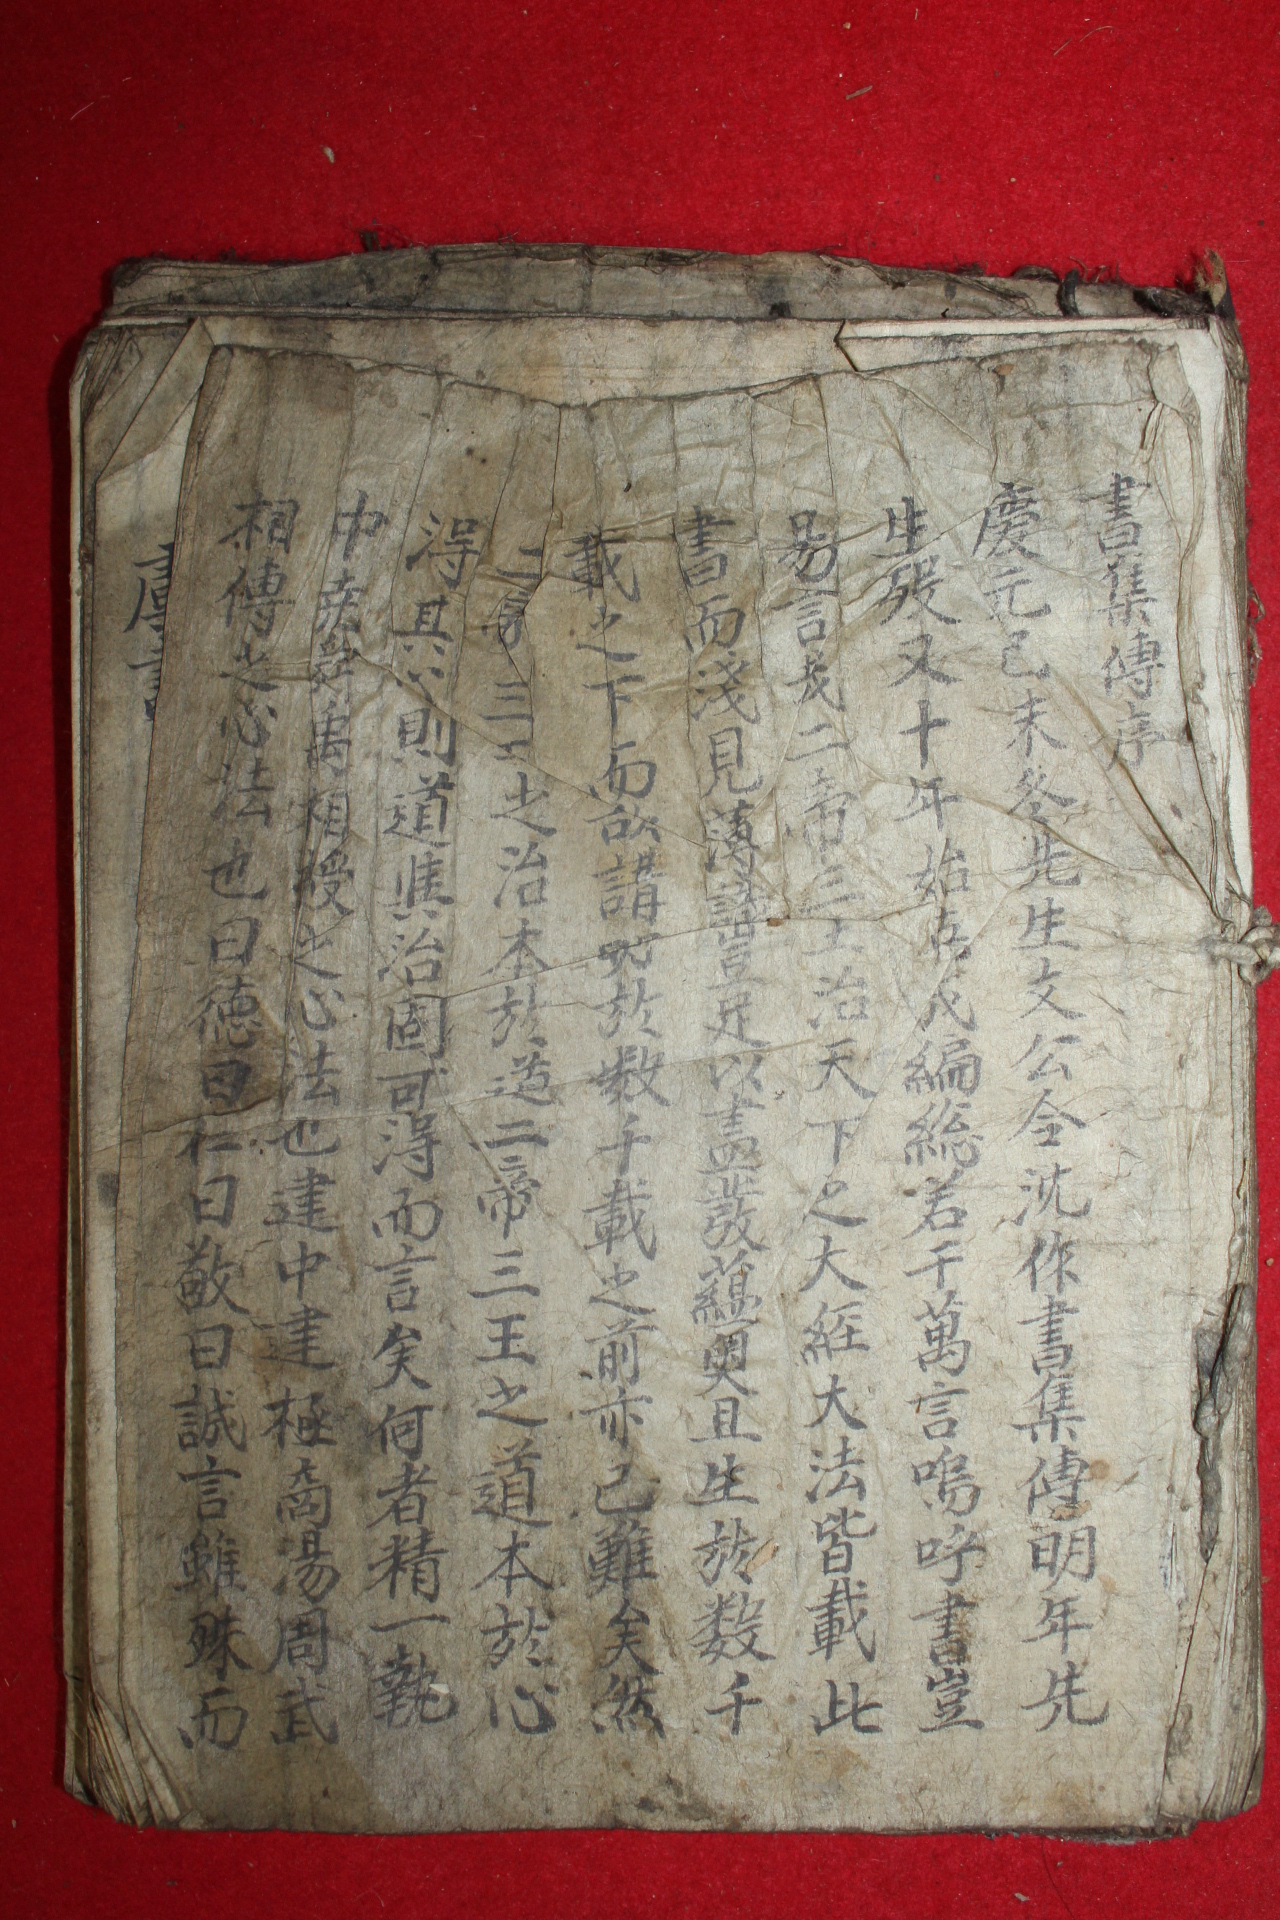 書集傳序
慶元己未冬先生文公令沈作書集傳明年先
生殁又十年始克成編総若干萬言嗚呼書豈
易言哉二帝三王治天下之大經大法皆載此
書而淺見薄識豈足以盡發蘊奧且生於数千
載之下而欲講明於數千載之前亦已難矣然
二帝三王之治本於道二帝三王之道本於心
得其心則道與治固可得而言矣何者精一執
中堯舜禹相授之心法也建中建極商湯周武
相傳之心法也曰德曰仁曰敬曰誠言雖殊而